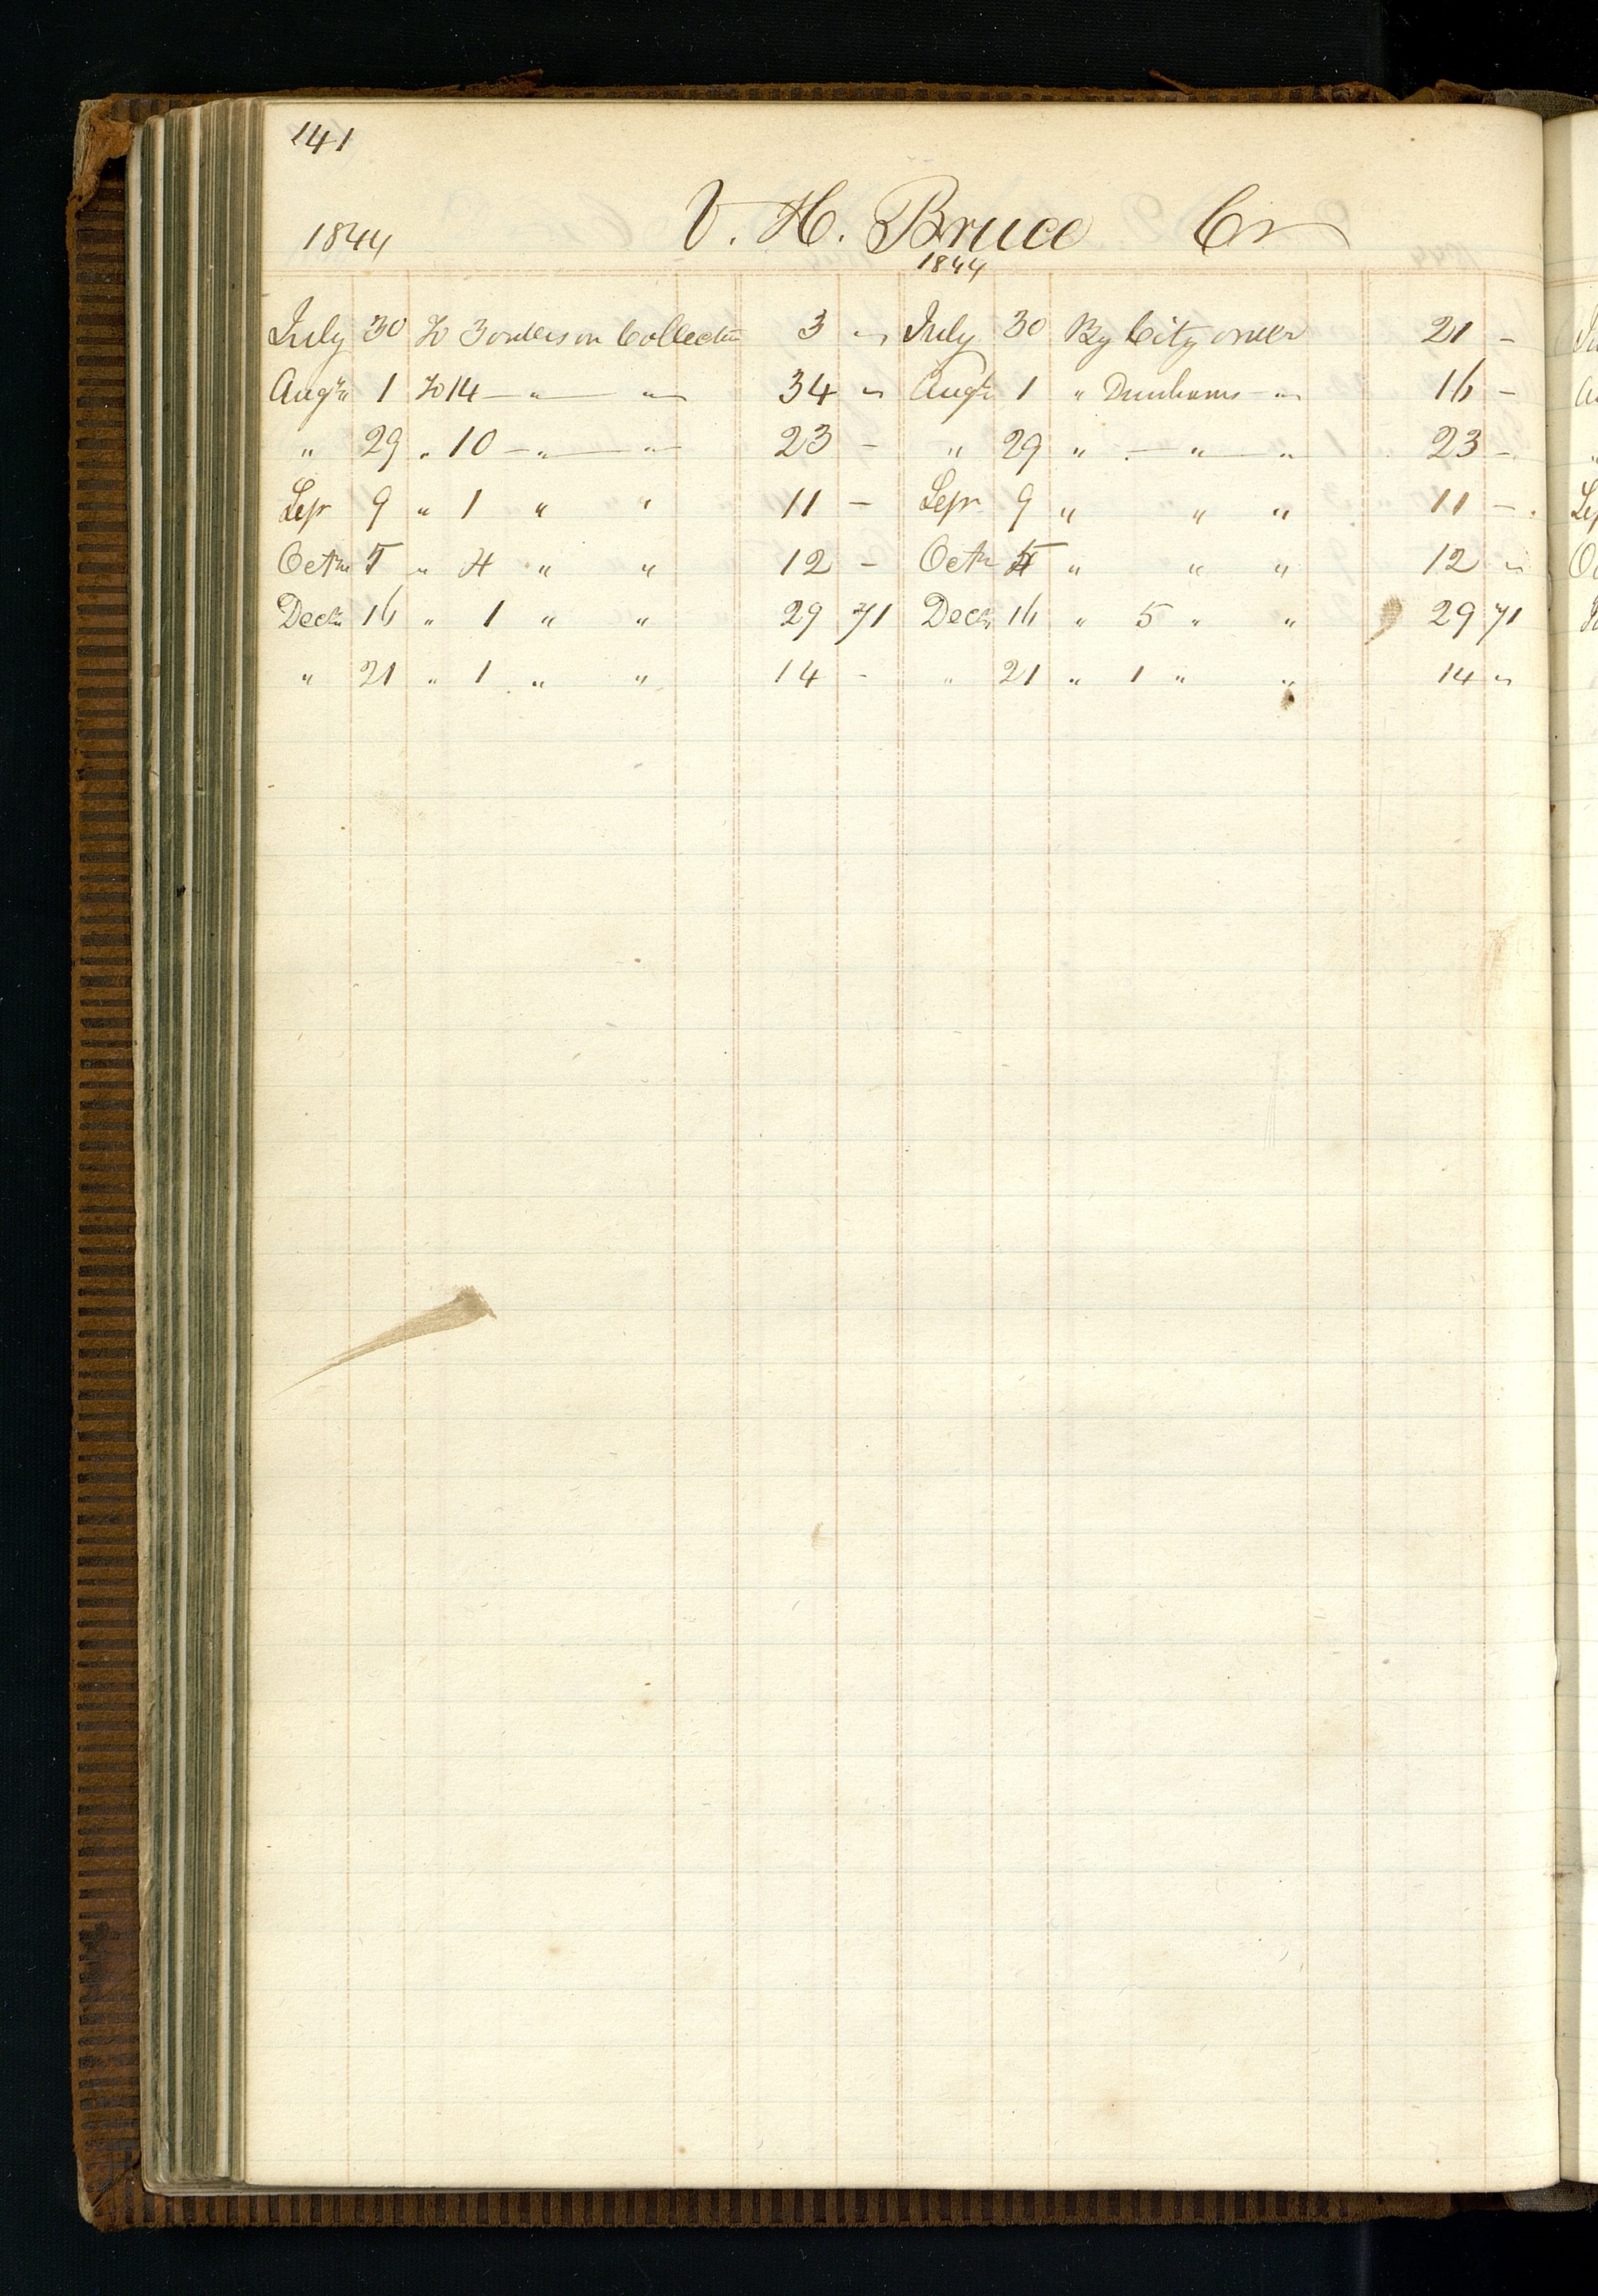 141
1844 V. H. Bruce Cr
1844
July 30 To 3 orders on Collector 3 " July 30 By City order 21 -
Augt 1 To 14 — " — " 34 " Augt 1 " Dunhams - " 16 -
" 29 " 10 — " — " 23 - " 29 " — " — " 23 -
Sepr 9 " 1 " " 11 - Sepr 9 " " " 11 -
Octr 5 " 4 " " 12 - Octr 5 " " " 12 "
Decr 16 " 1 " " 29 71 Decr 16 " 5 " " 29 71
" 21 " 1 " " 14 - " 21 " 1 " " 14 "